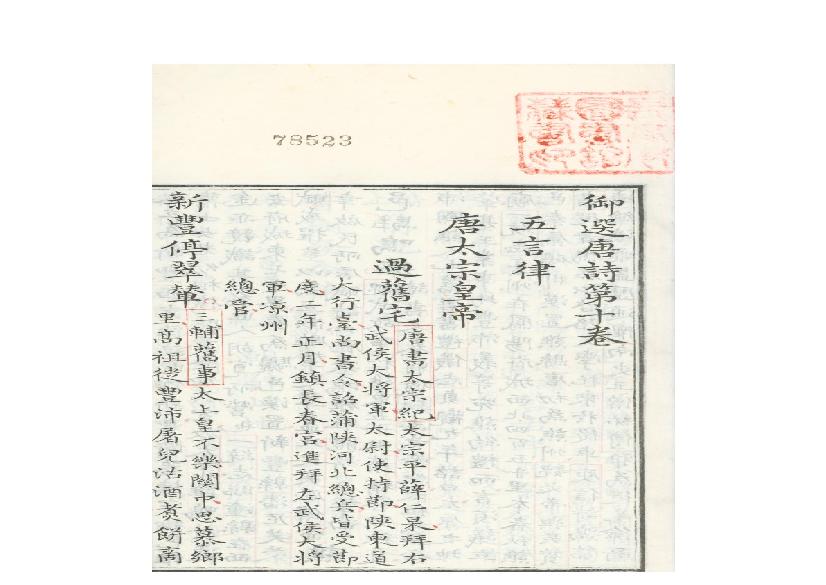 78523
御選唐詩第十卷
五言律
唐太宗皇帝
過舊宅
唐書太宗紀太宗平薛仁杲拜右
武侯大將軍太尉使持節陝東道
大行臺尚書令詔蒲陝河北總兵皆受節
度二年正月鎮長春宮進拜左武侯大將
軍涼州
總管
新豐停翠輦
三輔舊事太上皇不樂關中思慕鄉
里高祖徙豐沛屠兒沽酒煑餅商